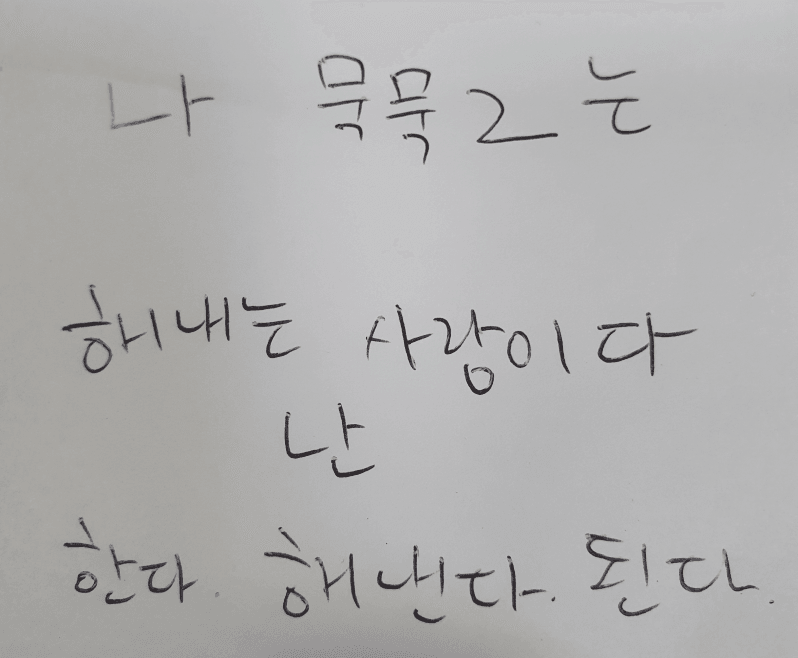 나 묵묵2는
해내는 사람이다
난
한다. 해낸다. 된다.